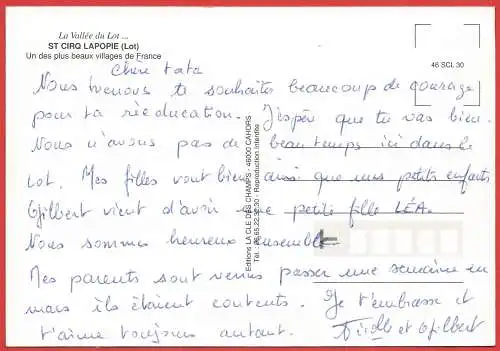 La Vallée du Lot ...
ST CIRQ LAPOPIE (Lot)
Un des plus beaux villages de France
46 SCL 30
Chère tata
Nous venons te souhaiter beaucoup de courage
pour ta rééducation. J'espère que tu vas bien.
Nous n'avons pas de beau temps ici dans le
Lot. Mes filles vont bien ainsi que mes petits enfants
Gilbert vient d'avoir une petite fille LÉA.
Nous sommes heureux ensemble
Mes parents sont venus passer une semaine en
mars ils étaient contents. Je t'embrasse et
t'aime toujours autant. et Gilbert
Editions LA CLE DES CHAMPS - 46000 CAHORS
Tél. : 65.22.32.30 - Reproduction interdite